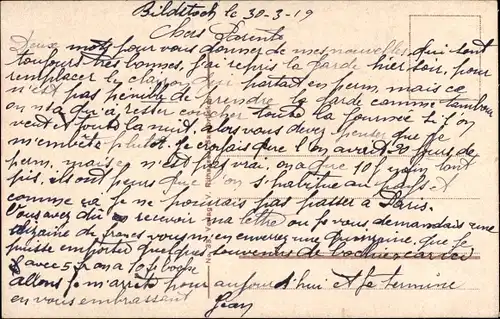 Bildstock le 30-3-19
Chers Parents
Deux mots pour vous donner de mes nouvelles qui sont
toujours très bonnes, j'ai repris la garde hier soir, pour
remplacer le clairon qui partait en perm, mais ce
n'est pas pénible de prendre la garde comme tambour
on n'a qu'a rester coucher toute la journée si l'on
veut et toute la nuit, alors vous devez penser que je
m'embête plutôt. Je croyais que l'on avait 20 jours de
perm, mais ce n'est pas vrai, on a que 10 tant
pis, ils ont peurs que l'on s'habitue au
comme ça je ne pourrais pas passer a Paris.
Vous avez du recevoir ma lettre ou je vous demandais une
dizaine de francs vous m'en enverrez une quinzaine, que je
puisse emporter quelques souvenirs de boches car ici
avec 5 frs on a 10
allons je m'arrête pour aujourd'hui et je termine
en vous embrassant Jean